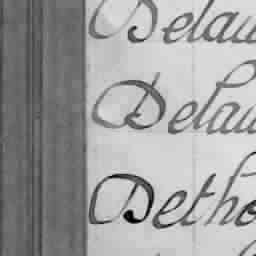 Delau
Delau
Detho